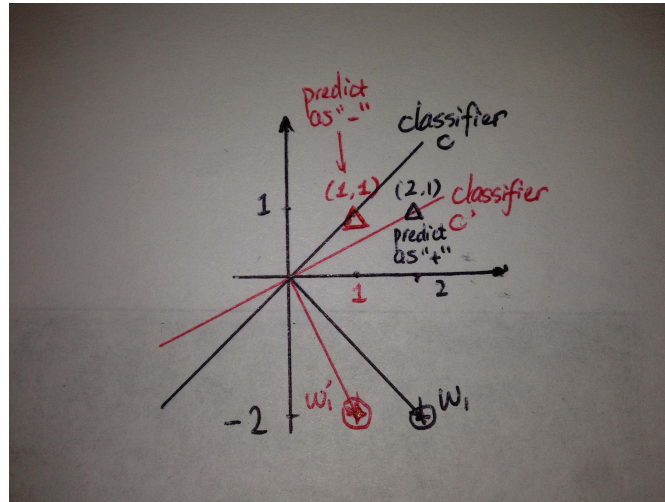 predict
as "-"
classifier
C
(1,1)
(2,1)
classifier
C'
1
predict
as "+"
1
2
w₁'
w₁
-2